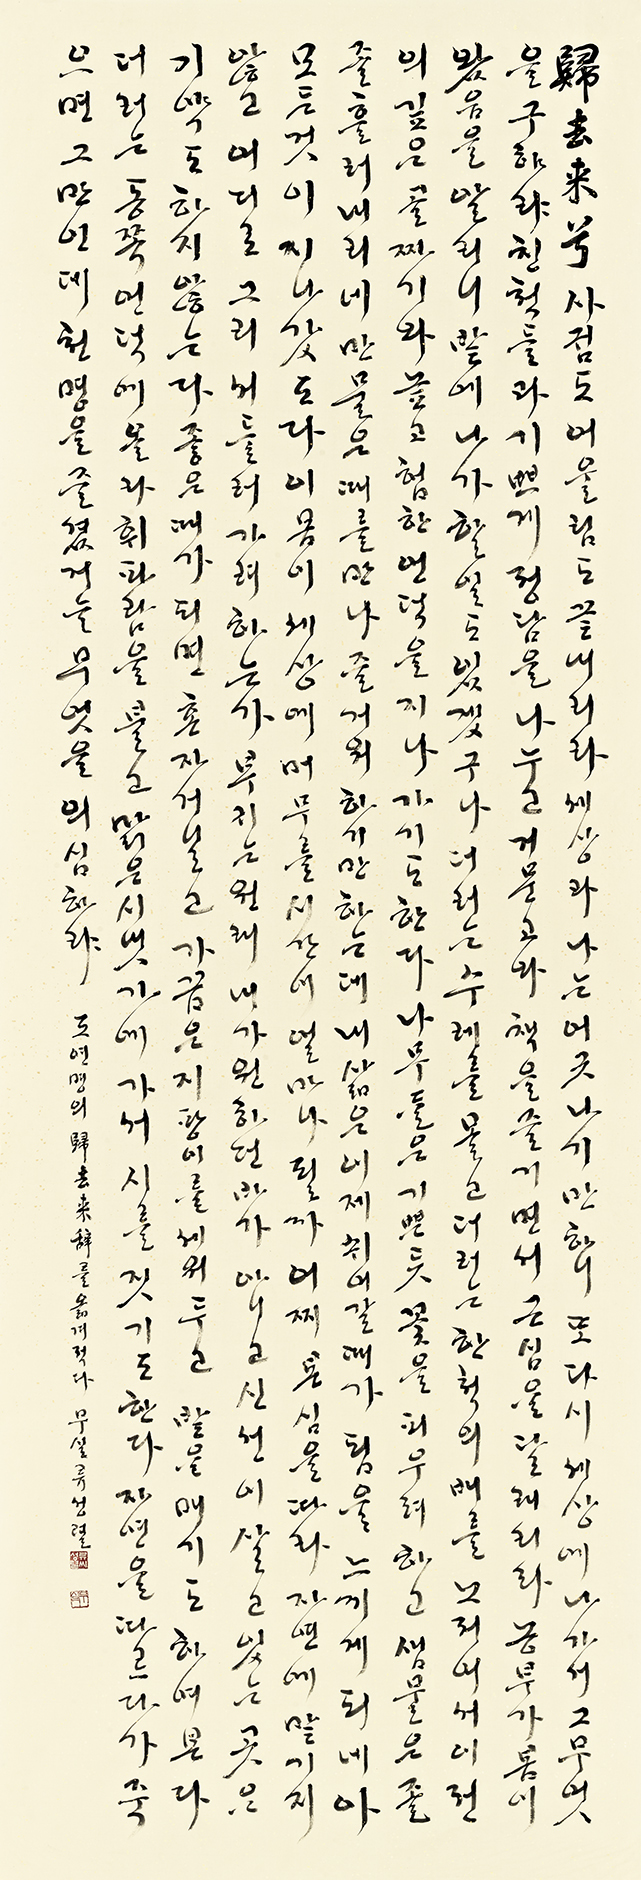 歸去来兮 사귐도 어울림도 끝내리라 세상과 나는 어긋나기만 하니 또다시 세상에 나가서 그 무엇
을 구하랴 친척들과 기쁘게 정담을 나누고 거문고와 책을 즐기면서 근심을 달래리라 농부가 봄이
왔음을 알리니 밭에 나가 할 일도 있겠구나 더러는 수레를 몰고 더러는 한 척의 배를 노저어서 이런
의 깊은 골짜기와 높고 험한 언덕을 지나가기도 한다 나무들은 기쁜듯 꽃을 피우려 하고 샘물은 졸
졸 흘러내리네 만물은 때를 만나 즐거워하기만 하는데 내 삶은 이제 쉬어갈 때가 됨을 느끼게 되네 아
모든 것이 지나갔도다 이 몸이 세상에 머무를 시간이 얼마나 될까 어찌 본심을 따라 자연에 맡기지
않고 어디로 그리 서둘러 가려 하는가 부귀는 원래 내가 원하던 바가 아니고 신선이 살고 있는 곳은
기약도 하지 않는다 좋은 때가 되면 혼자 거닐고 가끔은 지팡이를 세워두고 밭을 매기도 하여 본다
더러는 동쪽 언덕에 올라 휘파람을 불고 맑은 시냇가에 가서 시를 짓기도 한다 자연을 따르다가 죽
으면 그만인데 천명을 즐겼거늘 무엇을 의심하랴
도연명의 歸去来辭를 옮겨적다 무실 류성렬